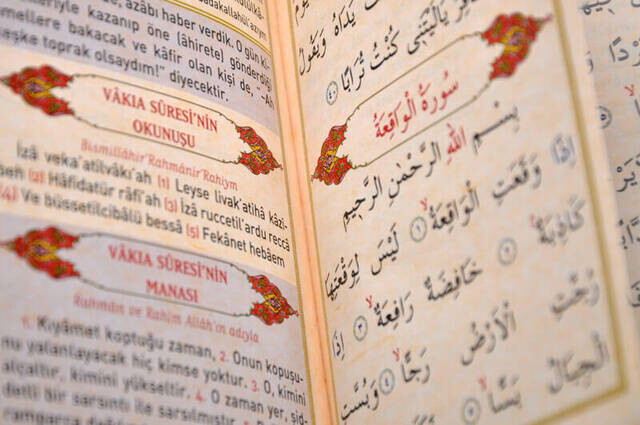 azâbı haber verdik. O gün ki
mellere bakacak ve kâfir olan kişi de, "-Ah
keşke toprak olsaydım!" diyecektir.
VÂKIA SÛRESİ'NİN
OKUNUŞU
Bismillâhir'Rahmânir'Rahîym
İzâ veka'atilvâkı'ah (1) Leyse livak'atihâ kâzi-
beh (2) Hâfidatür râfi'ah (3) İzâ ruccetil'ardu reccâ
(4) Ve büssetilcibâlü bessâ (5) Fekânet hebâem
VÂKIA SÛRESİ'NİN
MANASI
Rahmân ve Rahîm Allâh'ın adıyla
1. Kıyâmet koptuğu zaman, 2. Onun kopuşu-
nu yalanlayacak hiç kimse yoktur. 3. O, kimini
alçaltır, kimini yükseltir. 4. O zaman yer, şid-
detli bir sarsıntı ile sarsılmıştır. 5.
يَدَاهُ وَيَقُولُ
الْكَافِرُ يَا لَيْتَنِي كُنْتُ تُرَابًا ﴿٤٠﴾
سُورَةُ الْوَاقِعَةِ
بِسْمِ اللّٰهِ الرَّحْمٰنِ الرَّحِيمِ
إِذَا وَقَعَتِ الْوَاقِعَةُ ﴿١﴾ لَيْسَ لِوَقْعَتِهَا
كَاذِبَةٌ ﴿٢﴾ خَافِضَةٌ رَافِعَةٌ ﴿٣﴾ إِذَا
رُجَّتِ الْأَرْضُ رَجًّا ﴿٤﴾ وَبُسَّتِ
الْجِبَالُ بَسًّا ﴿٥﴾